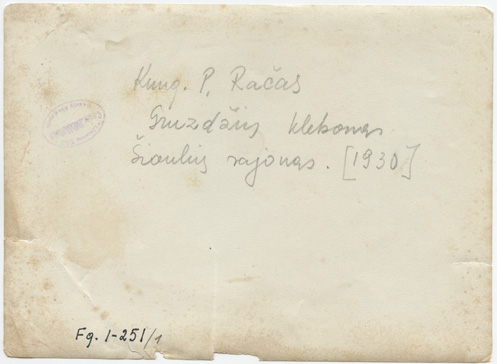 Kung. P. Račas
Gruzdžių klebonas
Šiaulių rajonas. [1930]
Fg. 1-251/1